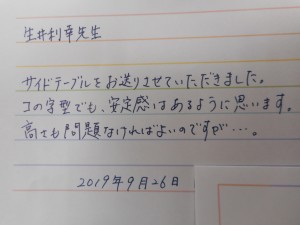 生井利幸先生
サイドテーブルをお送りさせていただきました。
コの字型でも、安定感はあるように思います。
高さも問題なければよいのですが…。
2019年9月26日